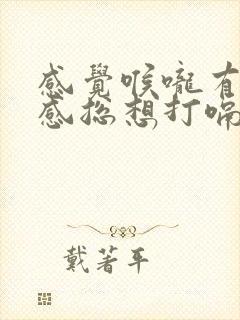 感覺喉嚨有
感總想打嗝
戴著平